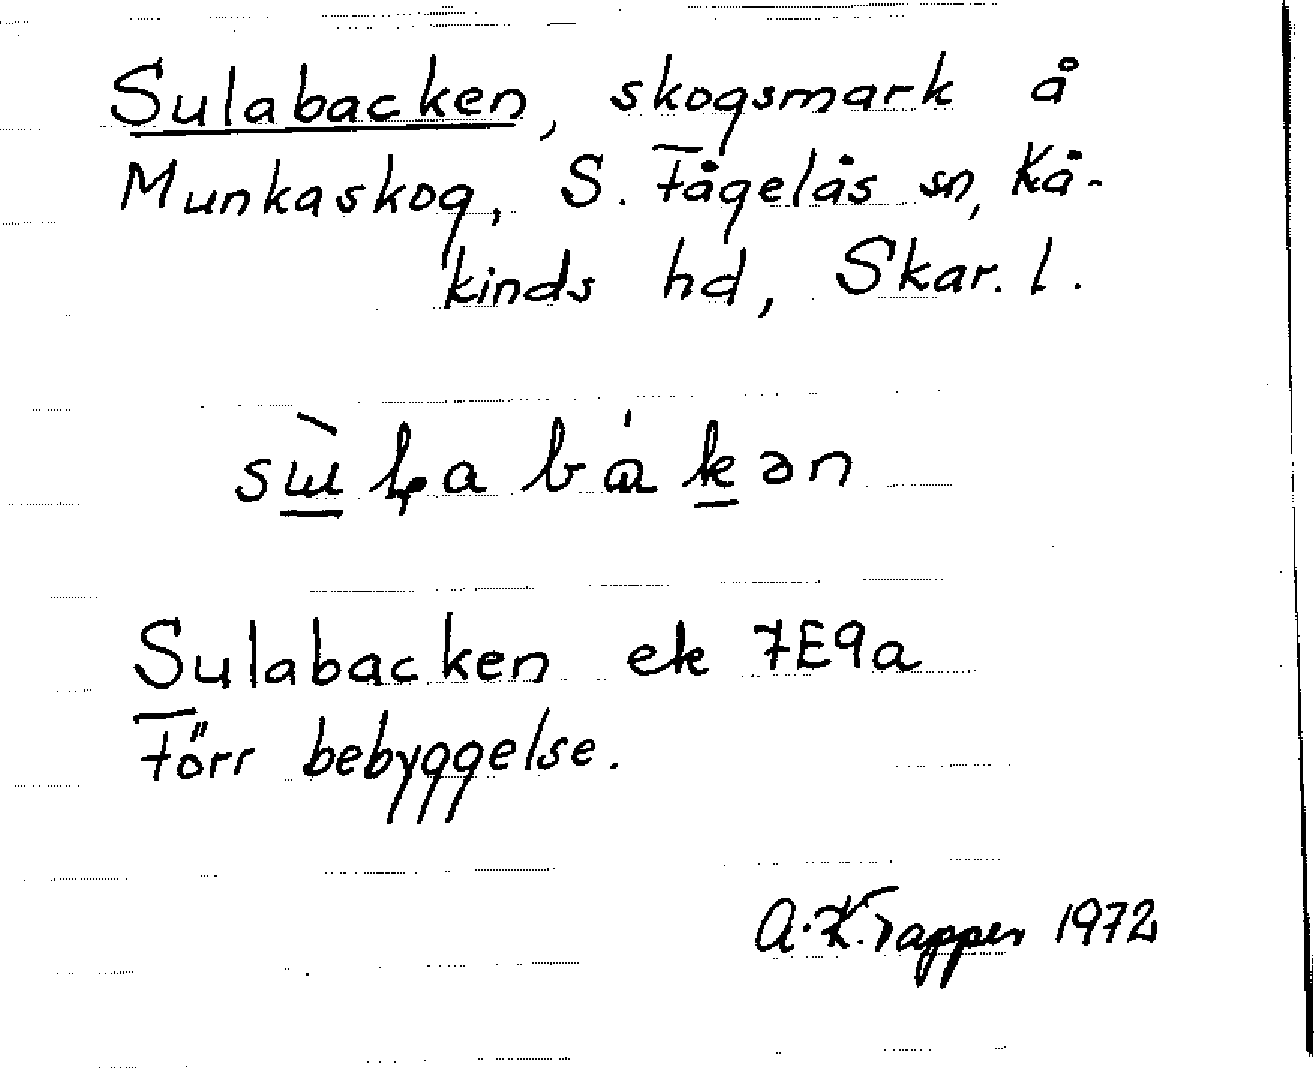 Sulabacken, skogsmark å
Munkaskog, S. Fågelås sn, Kå-
kinds hd, Skar. l.
Sulabacken ek 7E9a
Förr bebyggelse.
A. K. Trapper 1972